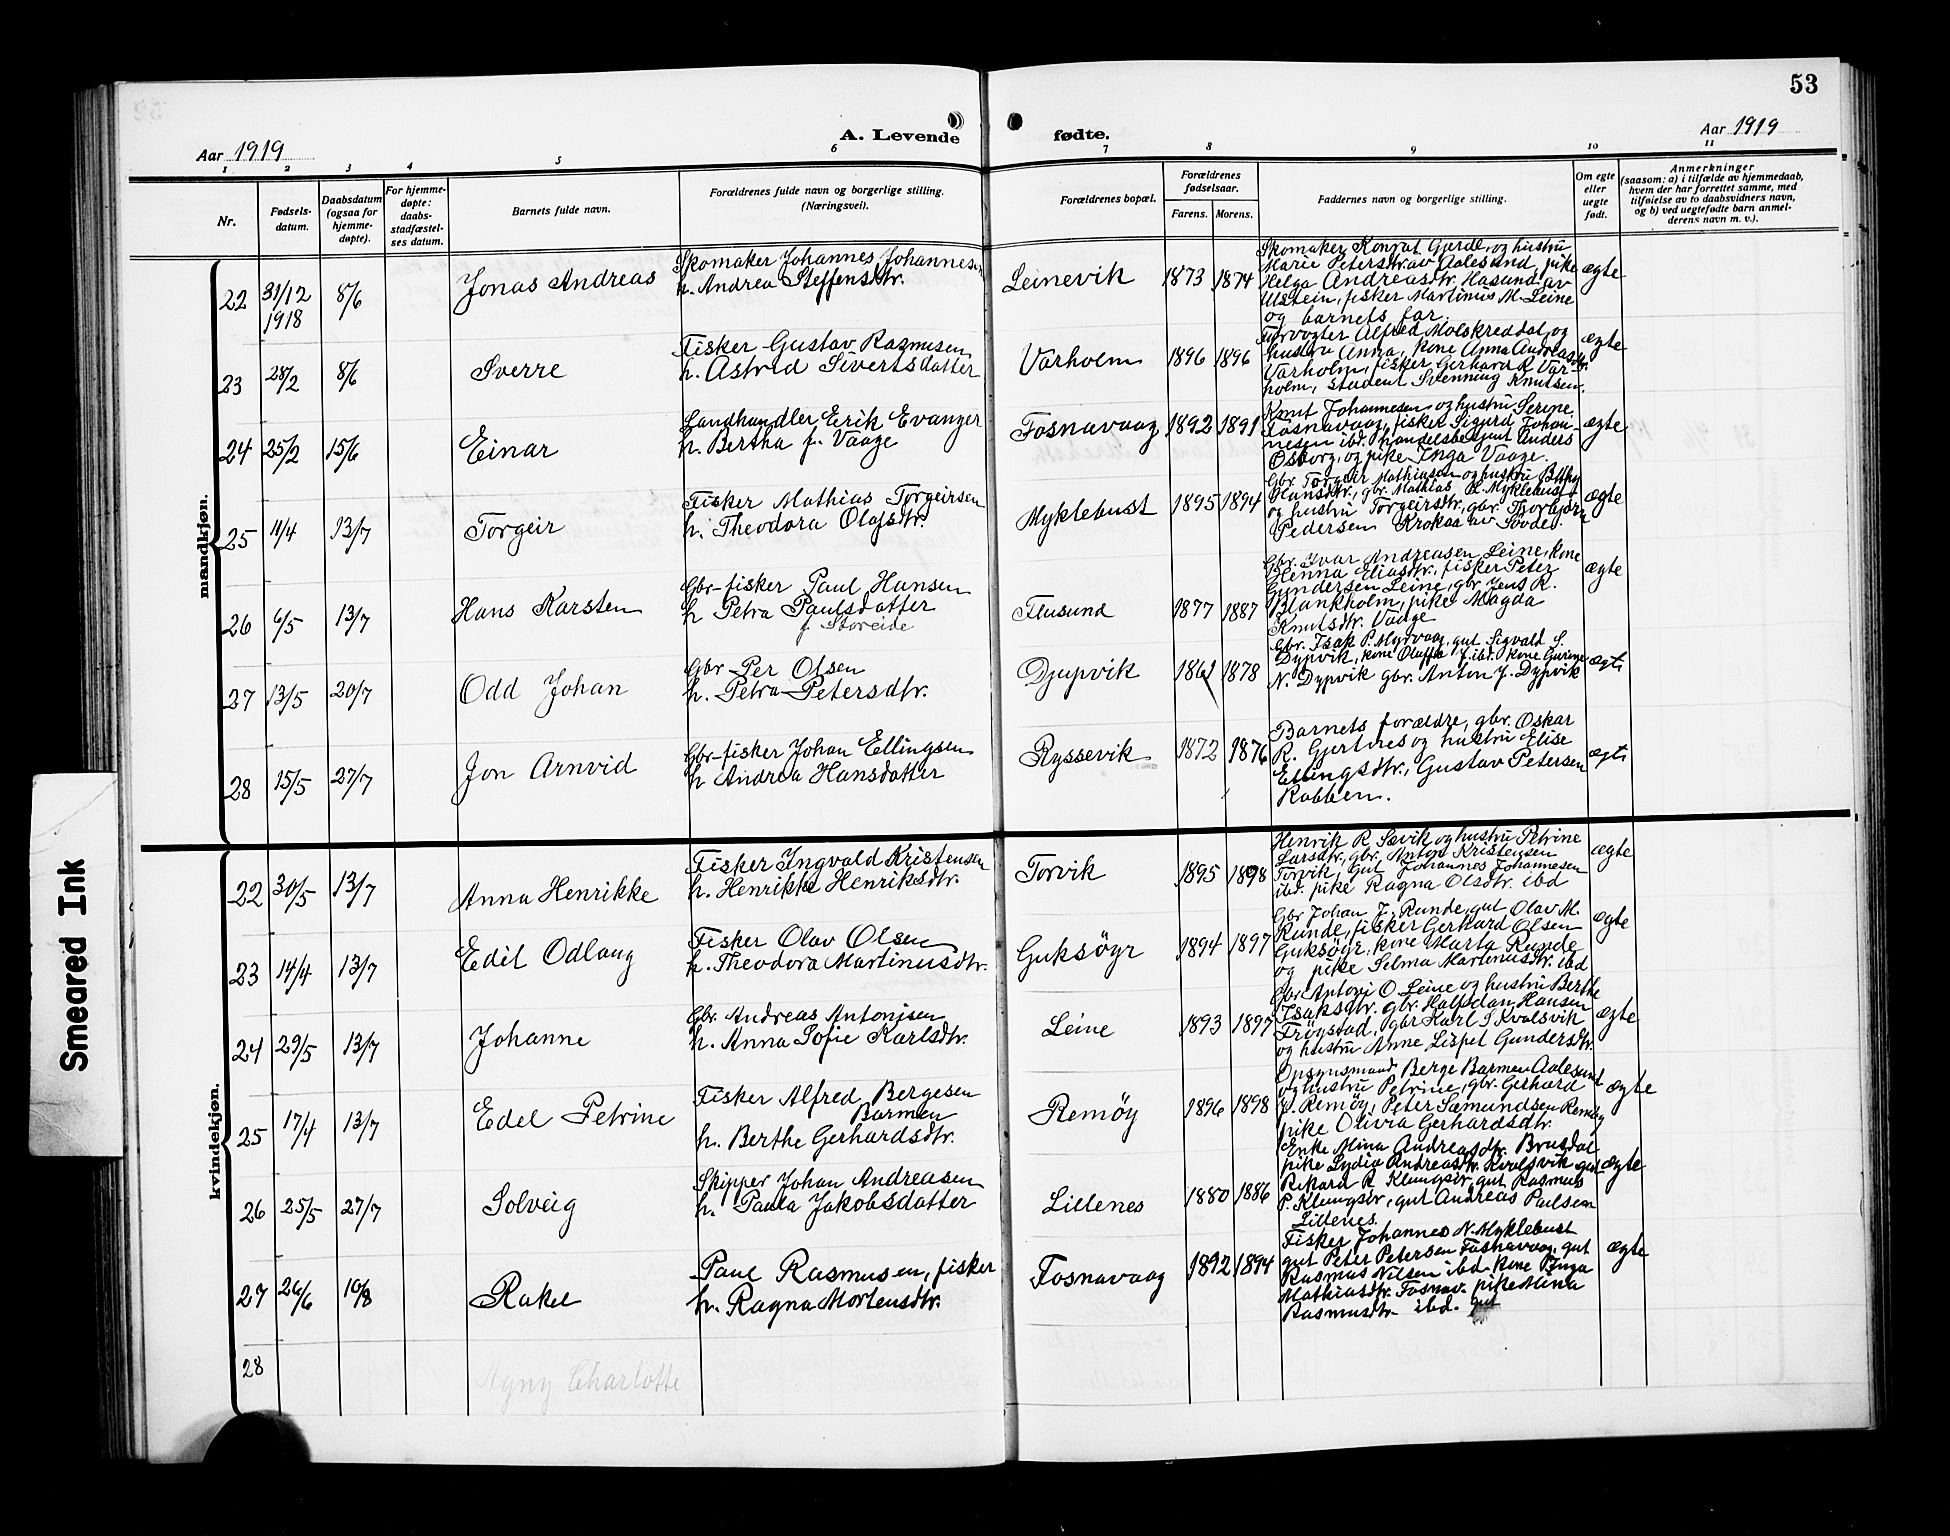 53
A. Levende fødte.
Aar 1919
Aar 1919
1 2 3 4 5 6 7 8 9 10 11
Nr.
Fødsels-
datum.
Daabsdatum
(ogsaa for
hjemme-
døpte).
For hjemme-
døpte:
daabs-
stadfæstel-
ses datum.
Barnets fulde navn.
Forældrenes fulde navn og borgerlige stilling.
(Næringsvei).
Forældrenes bopæl.
Forældrenes
fødselsaar.
Farens. Morens.
Faddernes navn og borgerlige stilling.
Om egte
eller
uegte
født.
Anmerkninger
(saasom: a) i tilfælde av hjemmedaab,
hvem der har forrettet samme, med
tilføielse av to daabsvidners navn,
og b) ved uegtefødte barn anmel-
derens navn m. v.).
mandkjøn.
22 31/12 1918 8/6 Jonas Andreas
Skomaker Johannes Johannesen
h. Andrea Steffensdtr.
Leinevik 1873 1874
Skomaker Konrat Gjerde, og hustru
Marie Petersdtr. av Aalesund, pike
Helga Andreasdtr. Hasund av
Ulstein, fisker Martinus M. Leine
og barnets far.
ægte
23 28/2 8/6 Sverre
Fisker Gustav Rasmusen
h. Astrid Sivertsdatter
Varholm 1896 1896
Fyrvogter Alfred Molskreddal, og
hustru Anna, kone Anna Andreasdtr.
Varholm, fisker Gerhard R. Var-
holm, student Svenning Knutsen.
ægte
24 25/2 15/6 Einar
Landhandler Erik Evanger
h. Bertha f. Vaage
Fosnavaag 1892 1891
Knut Johannesen og hustru Serine
Fosnavaag, fisker Sigurd Johan-
nesen ibd. handelsbetjent Anders
Osborg, og pike Inga Vaage.
ægte
25 11/4 13/7 Torgeir
Fisker Mathias Torgeirsen
h. Theodora Olafsdtr.
Myklebust 1895 1894
Gbr. Torgeir Mathiasen og hustru
Hansdtr., gbr. Mathias H. Myklebust
og hustru Torgeirsdtr., gbr. Thorbjørn
Pedersen Kroksa av Sövde.
ægte
26 6/5 13/7 Hans Karsten
Gbr-fisker Paul Hansen
h Petra Paulsdatter
f. Storeide
Flusund 1877 1887
Gbr. Ivar Andreasen Leine, kone
Henna Eliasdtr., fisker Peter
Gundersen Leine, gbr Jens R.
Blankholm, pike Magda
Knutsdtr. Vaage
ægte
27 13/5 20/7 Odd Johan
Gbr Per Olsen
h. Petra Petersdtr.
Djupvik 1861 1878
Gbr. Isak P. Myrvaag, gut Sigvald S.
Dypvik, kone Olaffa J. ibd. kone Gurine
N. Dypvik gbr. Anton J. Dypvik
ægte
28 15/5 27/7 Jon Arnvid
Gbr-fisker Johan Ellingsen
h Andrea Hansdatter
Ryssevik 1872 1876
Barnets forældre, gbr. Oskar
R. Gjertnes og hustru Elise
Ellingsdtr., Gustav Petersen
Rabben.
ægte
kvindekjøn.
22 30/5 13/7 Anna Henrikke
Fisker Ingvald Kristensen
h. Henrikke Henriksdtr.
Torvik 1895 1898
Henrik R Sævik og hustru Petrine
Larsdtr., gbr. Anton Kristensen
Torvik, gut Johannes Johannesen
ibd. pike Ragna Olsdtr. ibd
ægte
23 14/4 13/7 Edit Odlaug
Fisker Olav Olsen
h. Theodora Martinusdtr.
Guksöyr 1894 1897
Gbr Johan J. Runde, gut Olav M.
Runde, fisker Gerhard Olsen
Guksöyr, kone Marta Runde
og pike Selma Martinusdtr. ibd
ægte
24 29/5 13/7 Johanne
Gbr. Andreas Antonjsen
h. Anna Sofie Karlsdtr.
Leine 1893 1897
Gbr Antoni O Leine og hustru Berthe
Isaksdtr. gbr. Halfdan Hansen
Frögstad, gbr Karl J Kvalsvik
og hustru Anne Lispet Gundersdtr.
ægte
25 17/4 13/7 Edel Petrine
Fisker Alfred Bergesen
Barmen
h. Berthe Gerhardsdtr.
Remöy 1896 1898
Opsynsmand Berge Barmen Aalesund
og hustru Petrine, gbr. Gerhard
P. Remöy, Peter Sæmundsen Remöy
pike Olivia Gerhardsdtr.
ægte
26 25/5 27/7 Solveig
Skipper Johan Andreasen
h. Paula Jakobsdatter
Lillenes 1880 1886
Enke Mina Andreasdtr. Brusdal
pike Lydia Andreasdtr. Kvalsvik gut
Rikard R Klungsör, gut Rasmus
P. Klungsör, gut Andreas Paulsen
Lillenes.
ægte
27 26/6 10/8 Rakel
Paul Rasmusen, fisker
h. Ragna Mortensdtr.
Fosnavaag 1892 1894
Fisker Johannes N. Myklebust
gut Peter Petersen Fosnavaag, gut
Rasmus Nilsen ibd. kone Inga
Mathiasdtr. Fosnav. pike Mina
Rasmusdtr. ibd. gut
ægte
28 Agny Charlotte
Smeared Ink